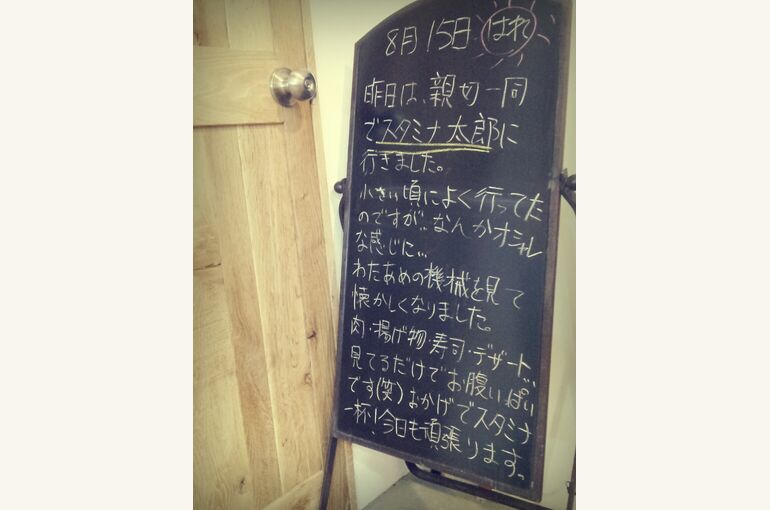 8月15日 はれ
昨日は、親切一同
でスタミナ太郎に
行きました。
小さい頃によく行ってた
のですが…なんかオシャレ
な感じに…
わたあめの機械を見て
懐かしくなりました。
肉・揚げ物・寿司・デザート…。
見てるだけでお腹いっぱい
です(笑)おかげでスタミナ
一杯!今日も頑張ります。